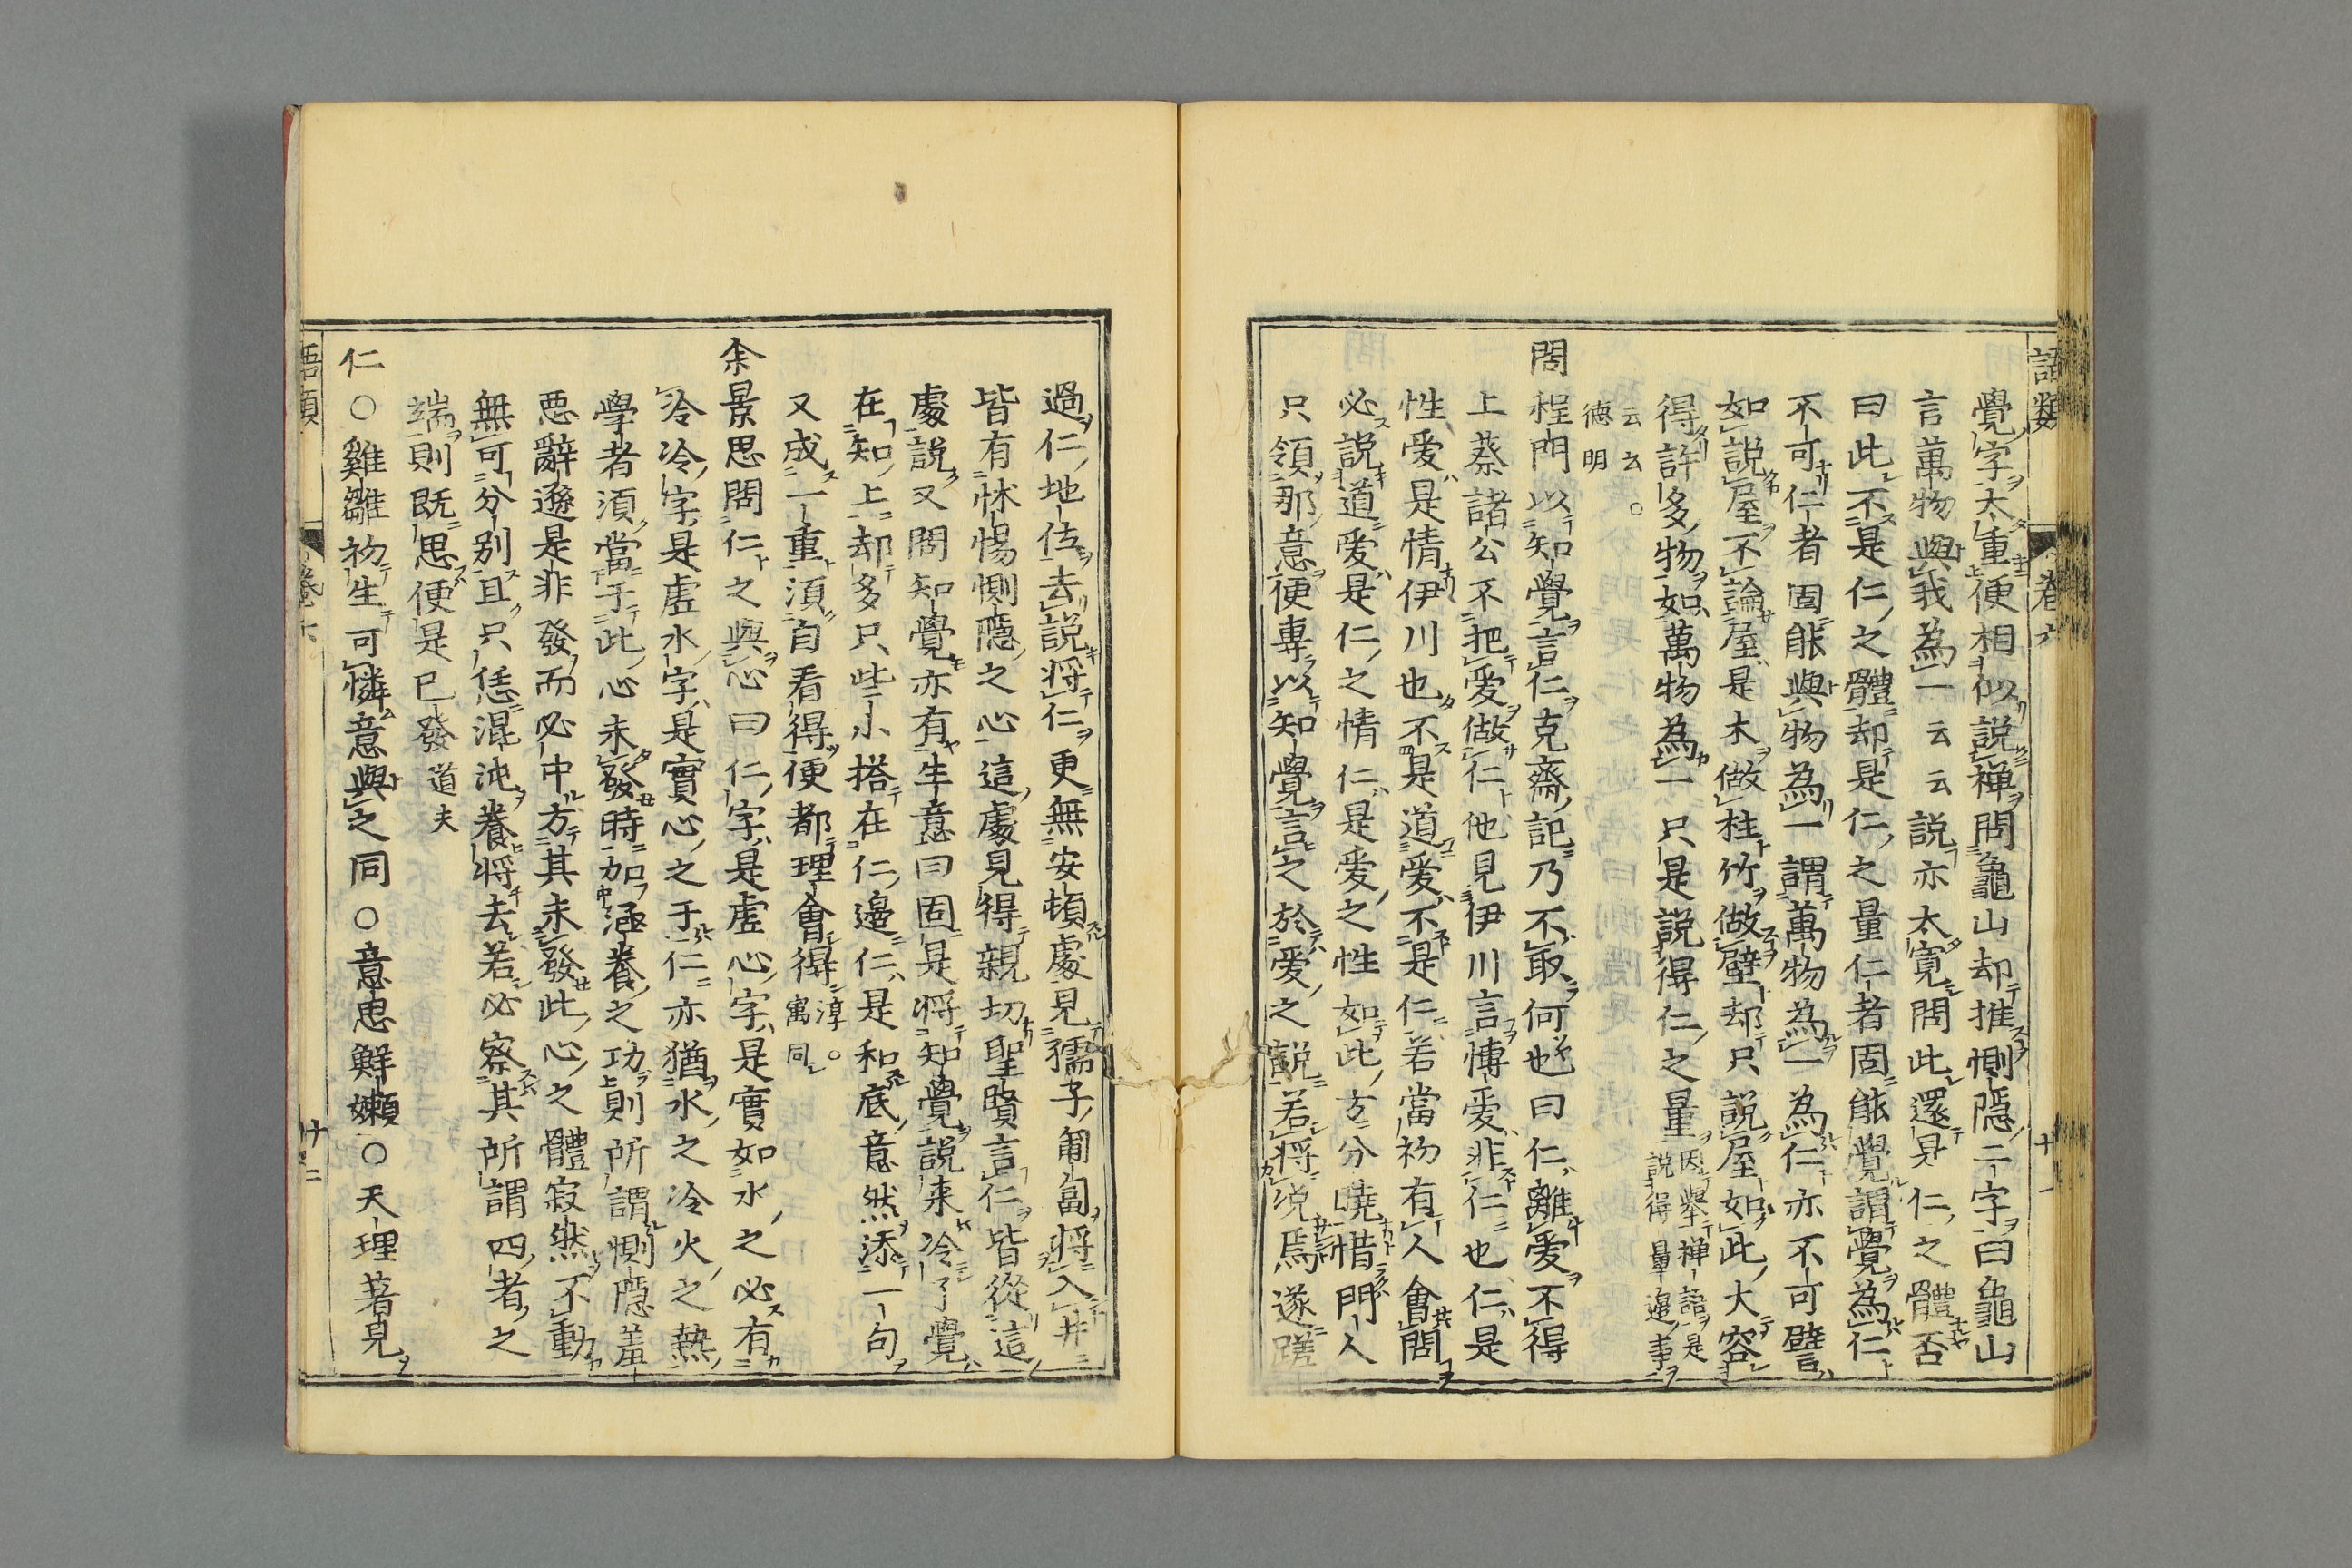 語類
卷六
十一
覺字太重便相似說禅問龜山却推惻隠二字曰龜山
言萬物與我為一云云說亦太寛問此還是仁之體否
曰此不是仁之體却是仁之量仁者固能覺謂覺為仁
不可仁者固能與物為一謂萬物為一為仁亦不可譬
如說屋不論屋是木做柱竹做壁却只說屋如此大容
得許多物如萬物為一只是說得仁之量因舉禅語是
說得量邊事
云云○
德明
問程門以知覺言仁克齋記乃不取何也曰仁離愛不得
上蔡諸公不把愛做仁他見伊川言博愛非仁也仁是
性愛是情伊川也不是道愛不是仁若當初有人會問
必說道愛是仁之情仁是愛之性如此方分曉惜門人
只領那意便專以知覺言之於愛之說若將浼焉遂蹉
過仁地位去說将仁更無安頓處見孺子匍匐将入井
皆有怵惕惻隠之心這處見得親切聖賢言仁皆從這
處說又問知覺亦有生意曰固是将知覺說来冷了覺
在知上却多只些小搭在仁邊仁是和底意然添一句
又成一重湏自看得便都理會得淳○
寓同
余景思問仁之與心曰仁字是虛心字是實如水之必有
冷冷字是虛水字是實心之于仁亦猶水之冷火之熱
學者湏當于此心未發時加涵養之功則所謂惻隠羞
惡辭遜是非發而必中方其未發此心之體寂然不動
無可分別且只恁混沌養将去若必察其所謂四者之
端則既思便是已發道夫
仁○雞雛初生可憐意與之同○意思鮮嫩○天理著見
語類
卷六
十二